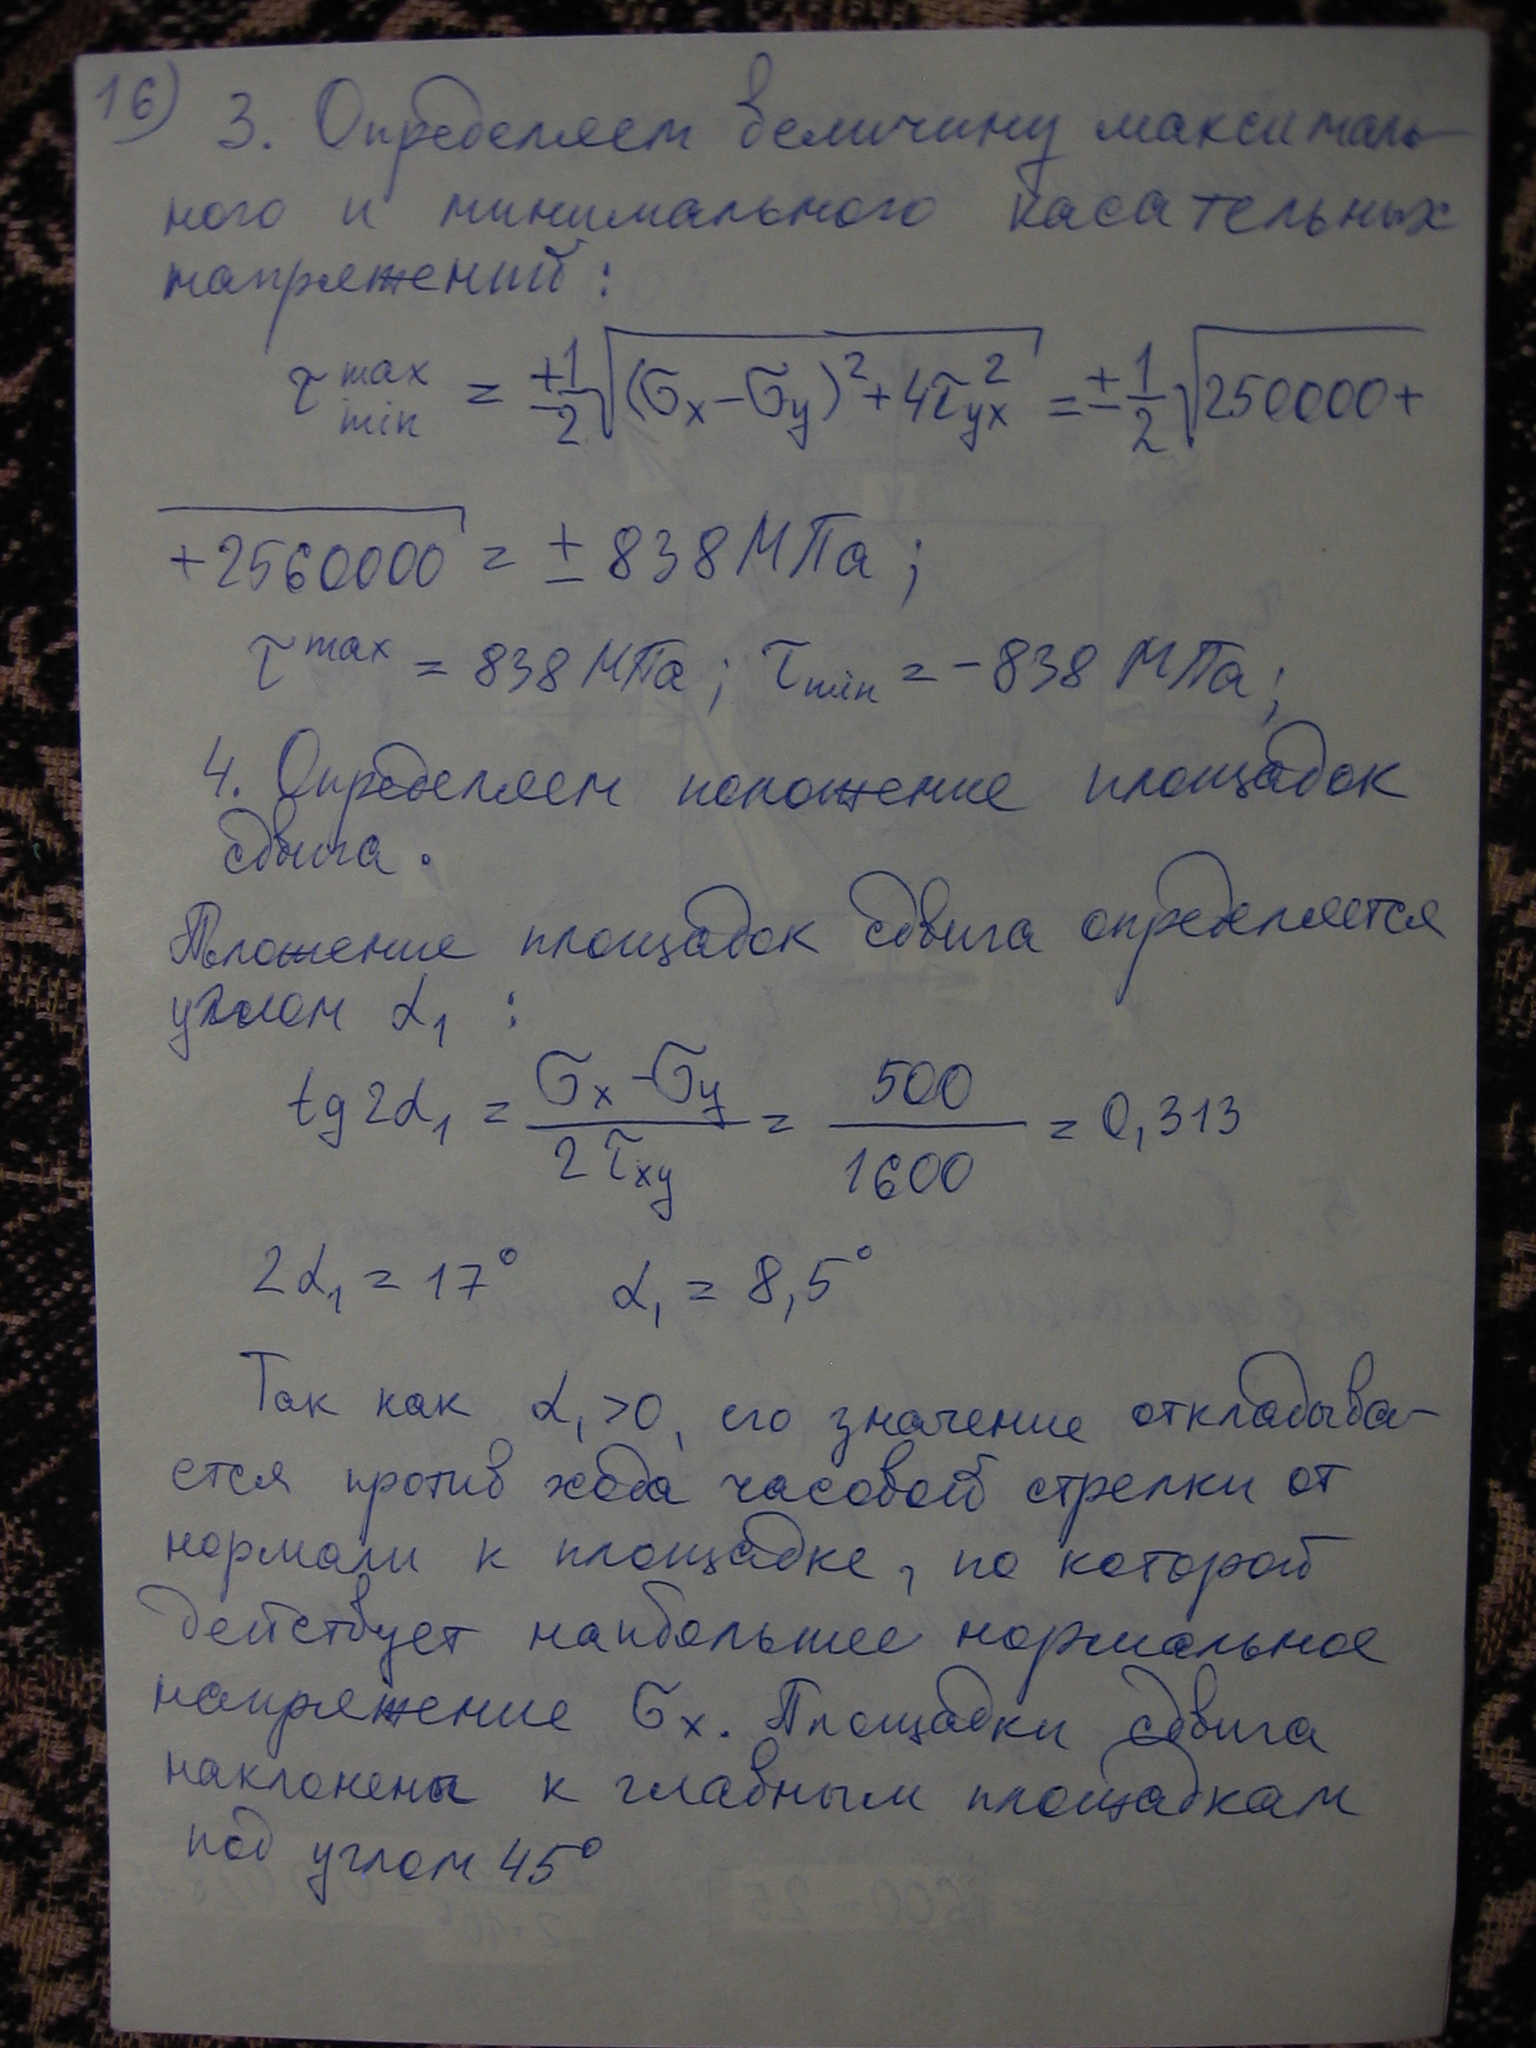 16) 3. Определяем величину максималь-
ного и минимального касательных
напряжений:
τ max min = ±1/2 √(σx-σy)²+4τyx² = ±1/2 √250000+
+2560000 = ±838 МПа;
τ max = 838 МПа; τ min = -838 МПа;
4. Определяем положение площадок
сдвига.
Положение площадок сдвига определяется
углом α₁ :
tg2α₁ = σx-σy / 2τxy = 500 / 1600 = 0,313
2α₁ = 17° α₁ = 8,5°
Так как α₁>0, его значение откладыва-
ется против хода часовой стрелки от
нормали к площадке, по которой
действует наибольшее нормальное
напряжение σx. Площадки сдвига
наклонены к главным площадкам
под углом 45°